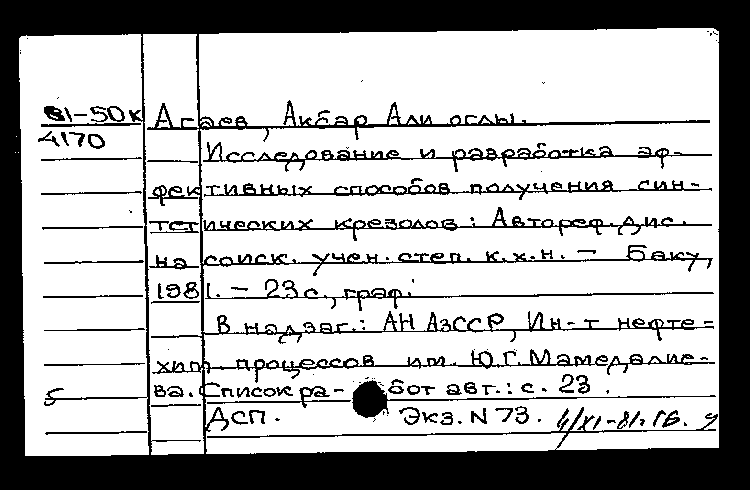 81-50к Агаев, Акбар Али оглы.
4170
Исследование и разработка эф-
фективных способов получения син-
тетических крезолов: Автореф. дис.
на соиск. учен. степ. к.х.н. - Баку,
1981. - 23 с., граф.
В надзаг.: АН АзССР, Ин-т нефте=
хим. процессов им. Ю.Г. Мамедалие-
5 ва. Список ра-бот авт.: с. 23.
ДСП. Экз. N 73. 4/XI-81г.